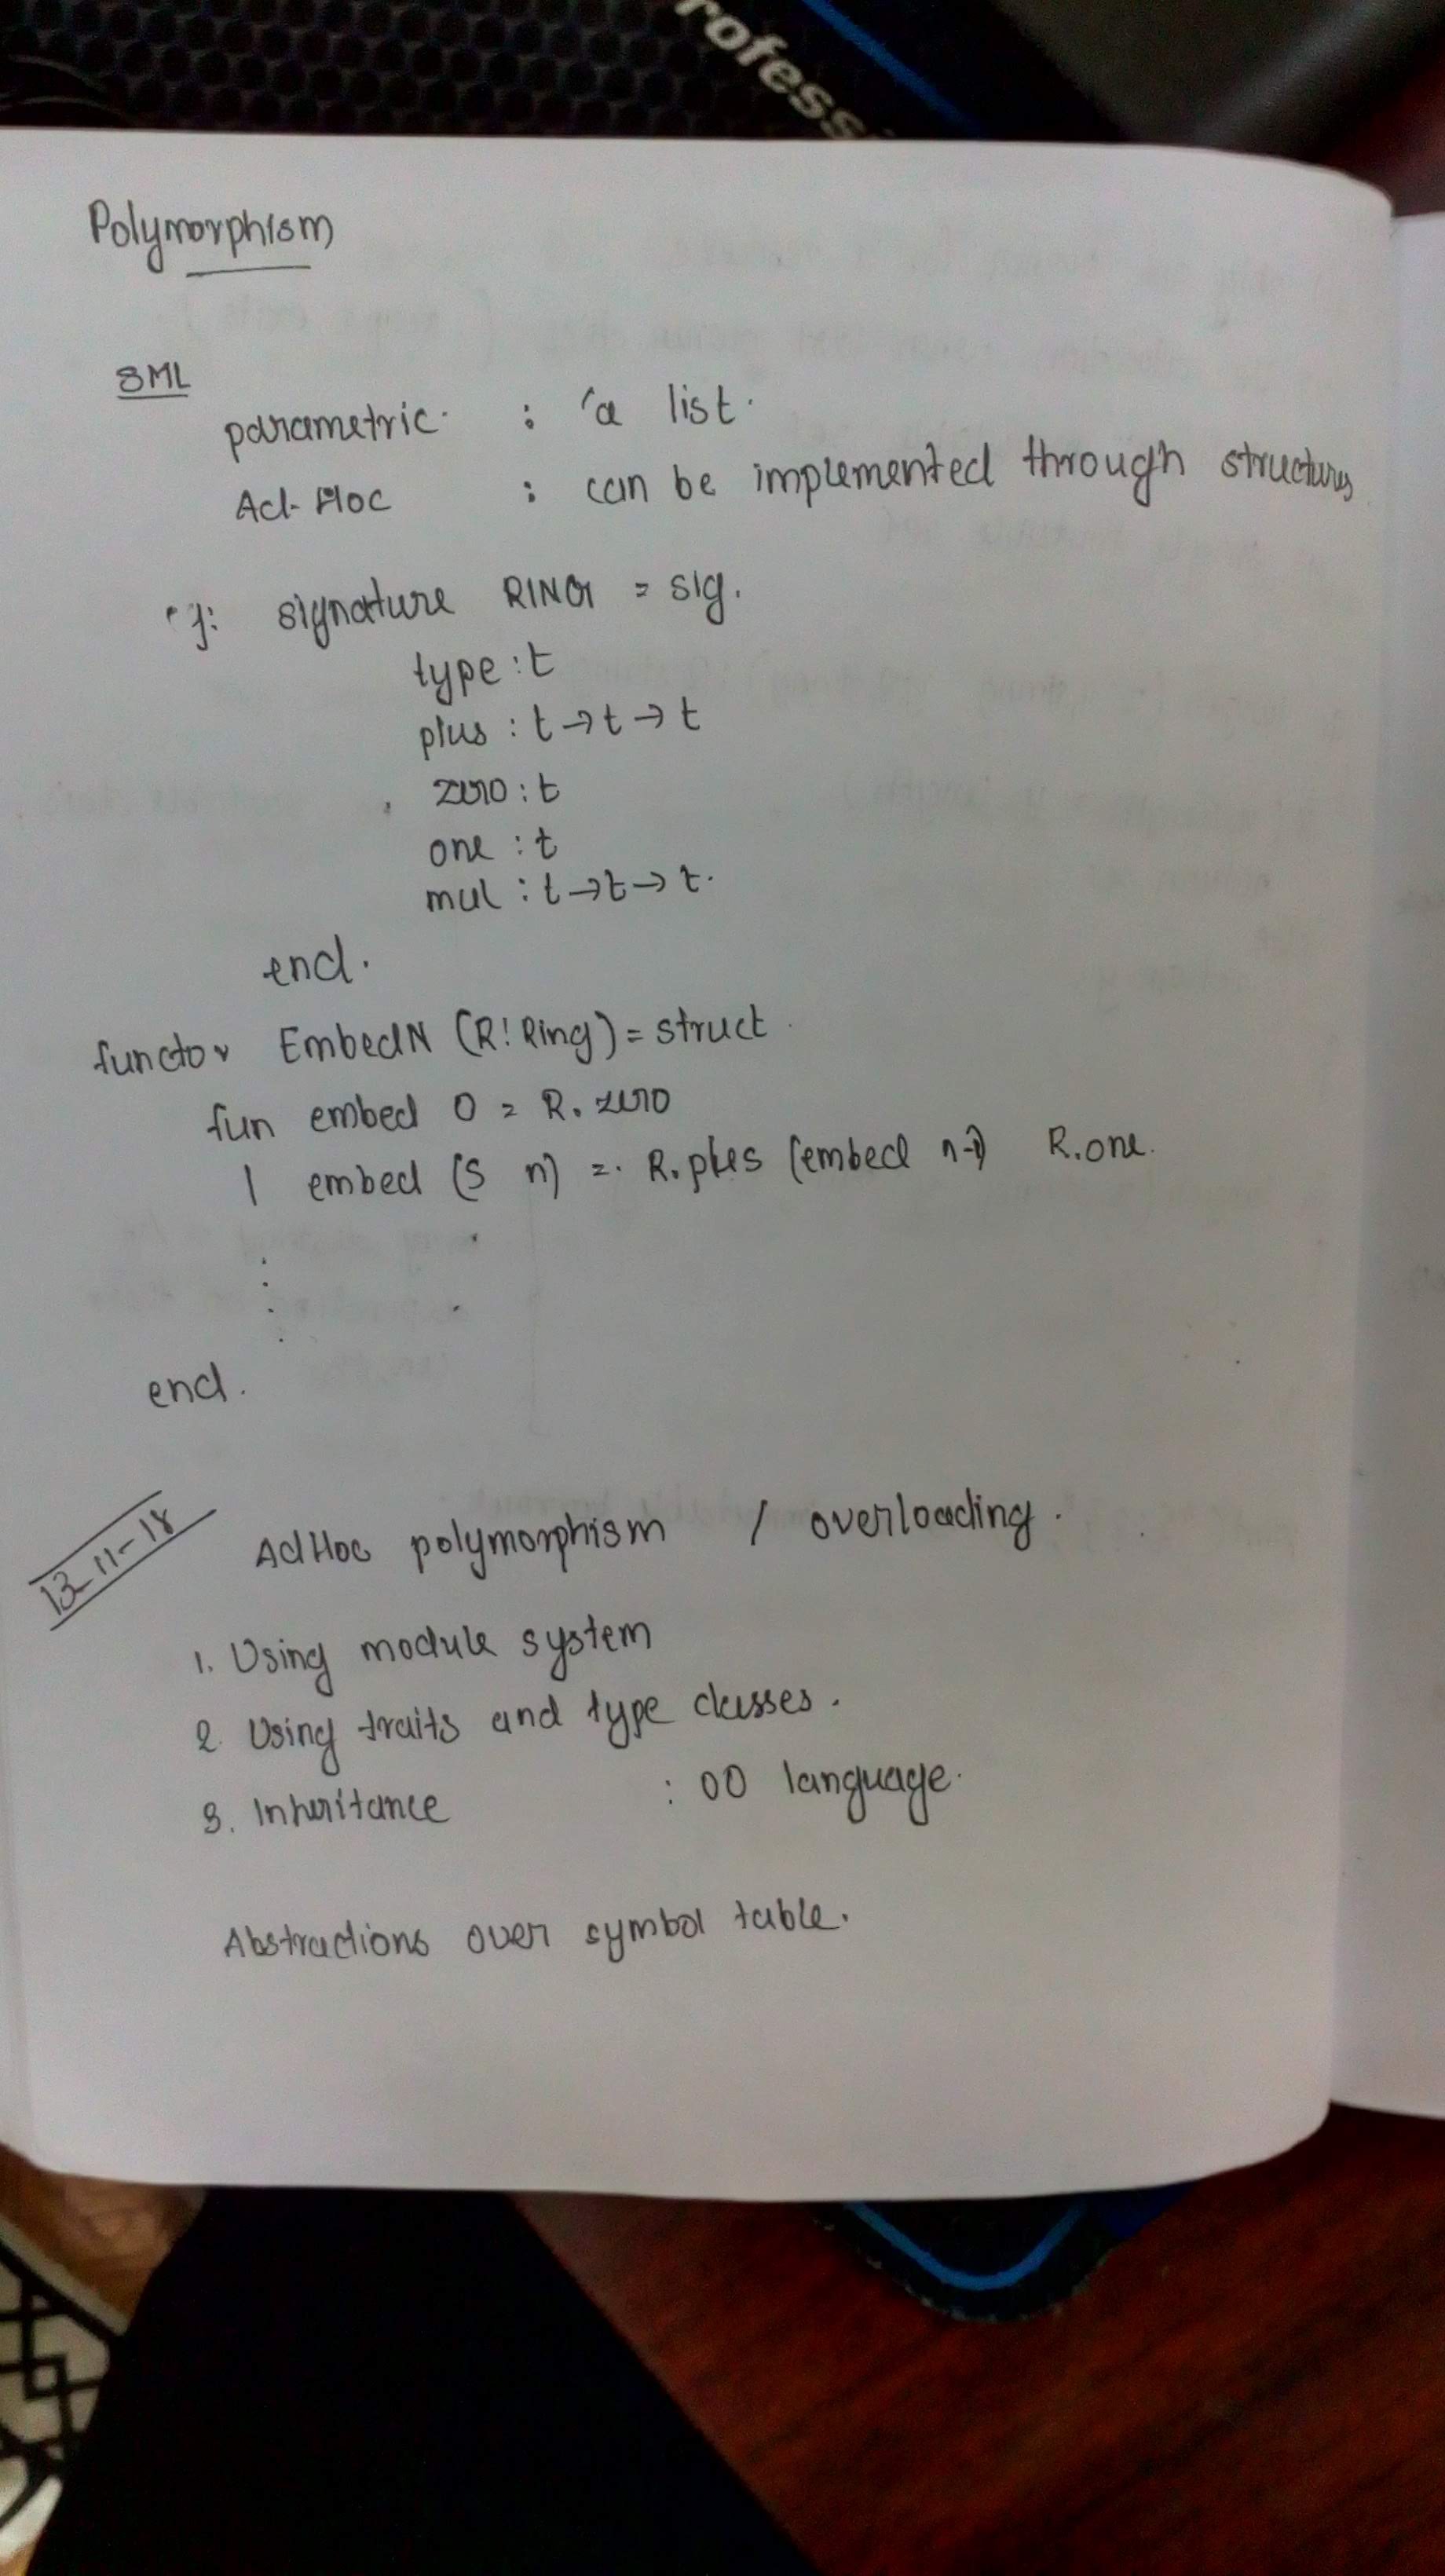 rofess
Polymorphism
SML
parametric : 'a list.
Ad-Hoc : can be implemented through structures
eg: signature RING = sig.
type : t
plus : t → t → t
zero : t
one : t
mul : t → t → t.
end.
functor EmbedN (R: Ring) = struct
fun embed 0 = R. zero
| embed (S n) = R. plus (embed n-1) R.one.
end.
13-11-18
AdHoc polymorphism / overloading.
1. Using module system
2. Using traits and type classes.
3. Inheritance : OO language.
Abstractions over symbol table.